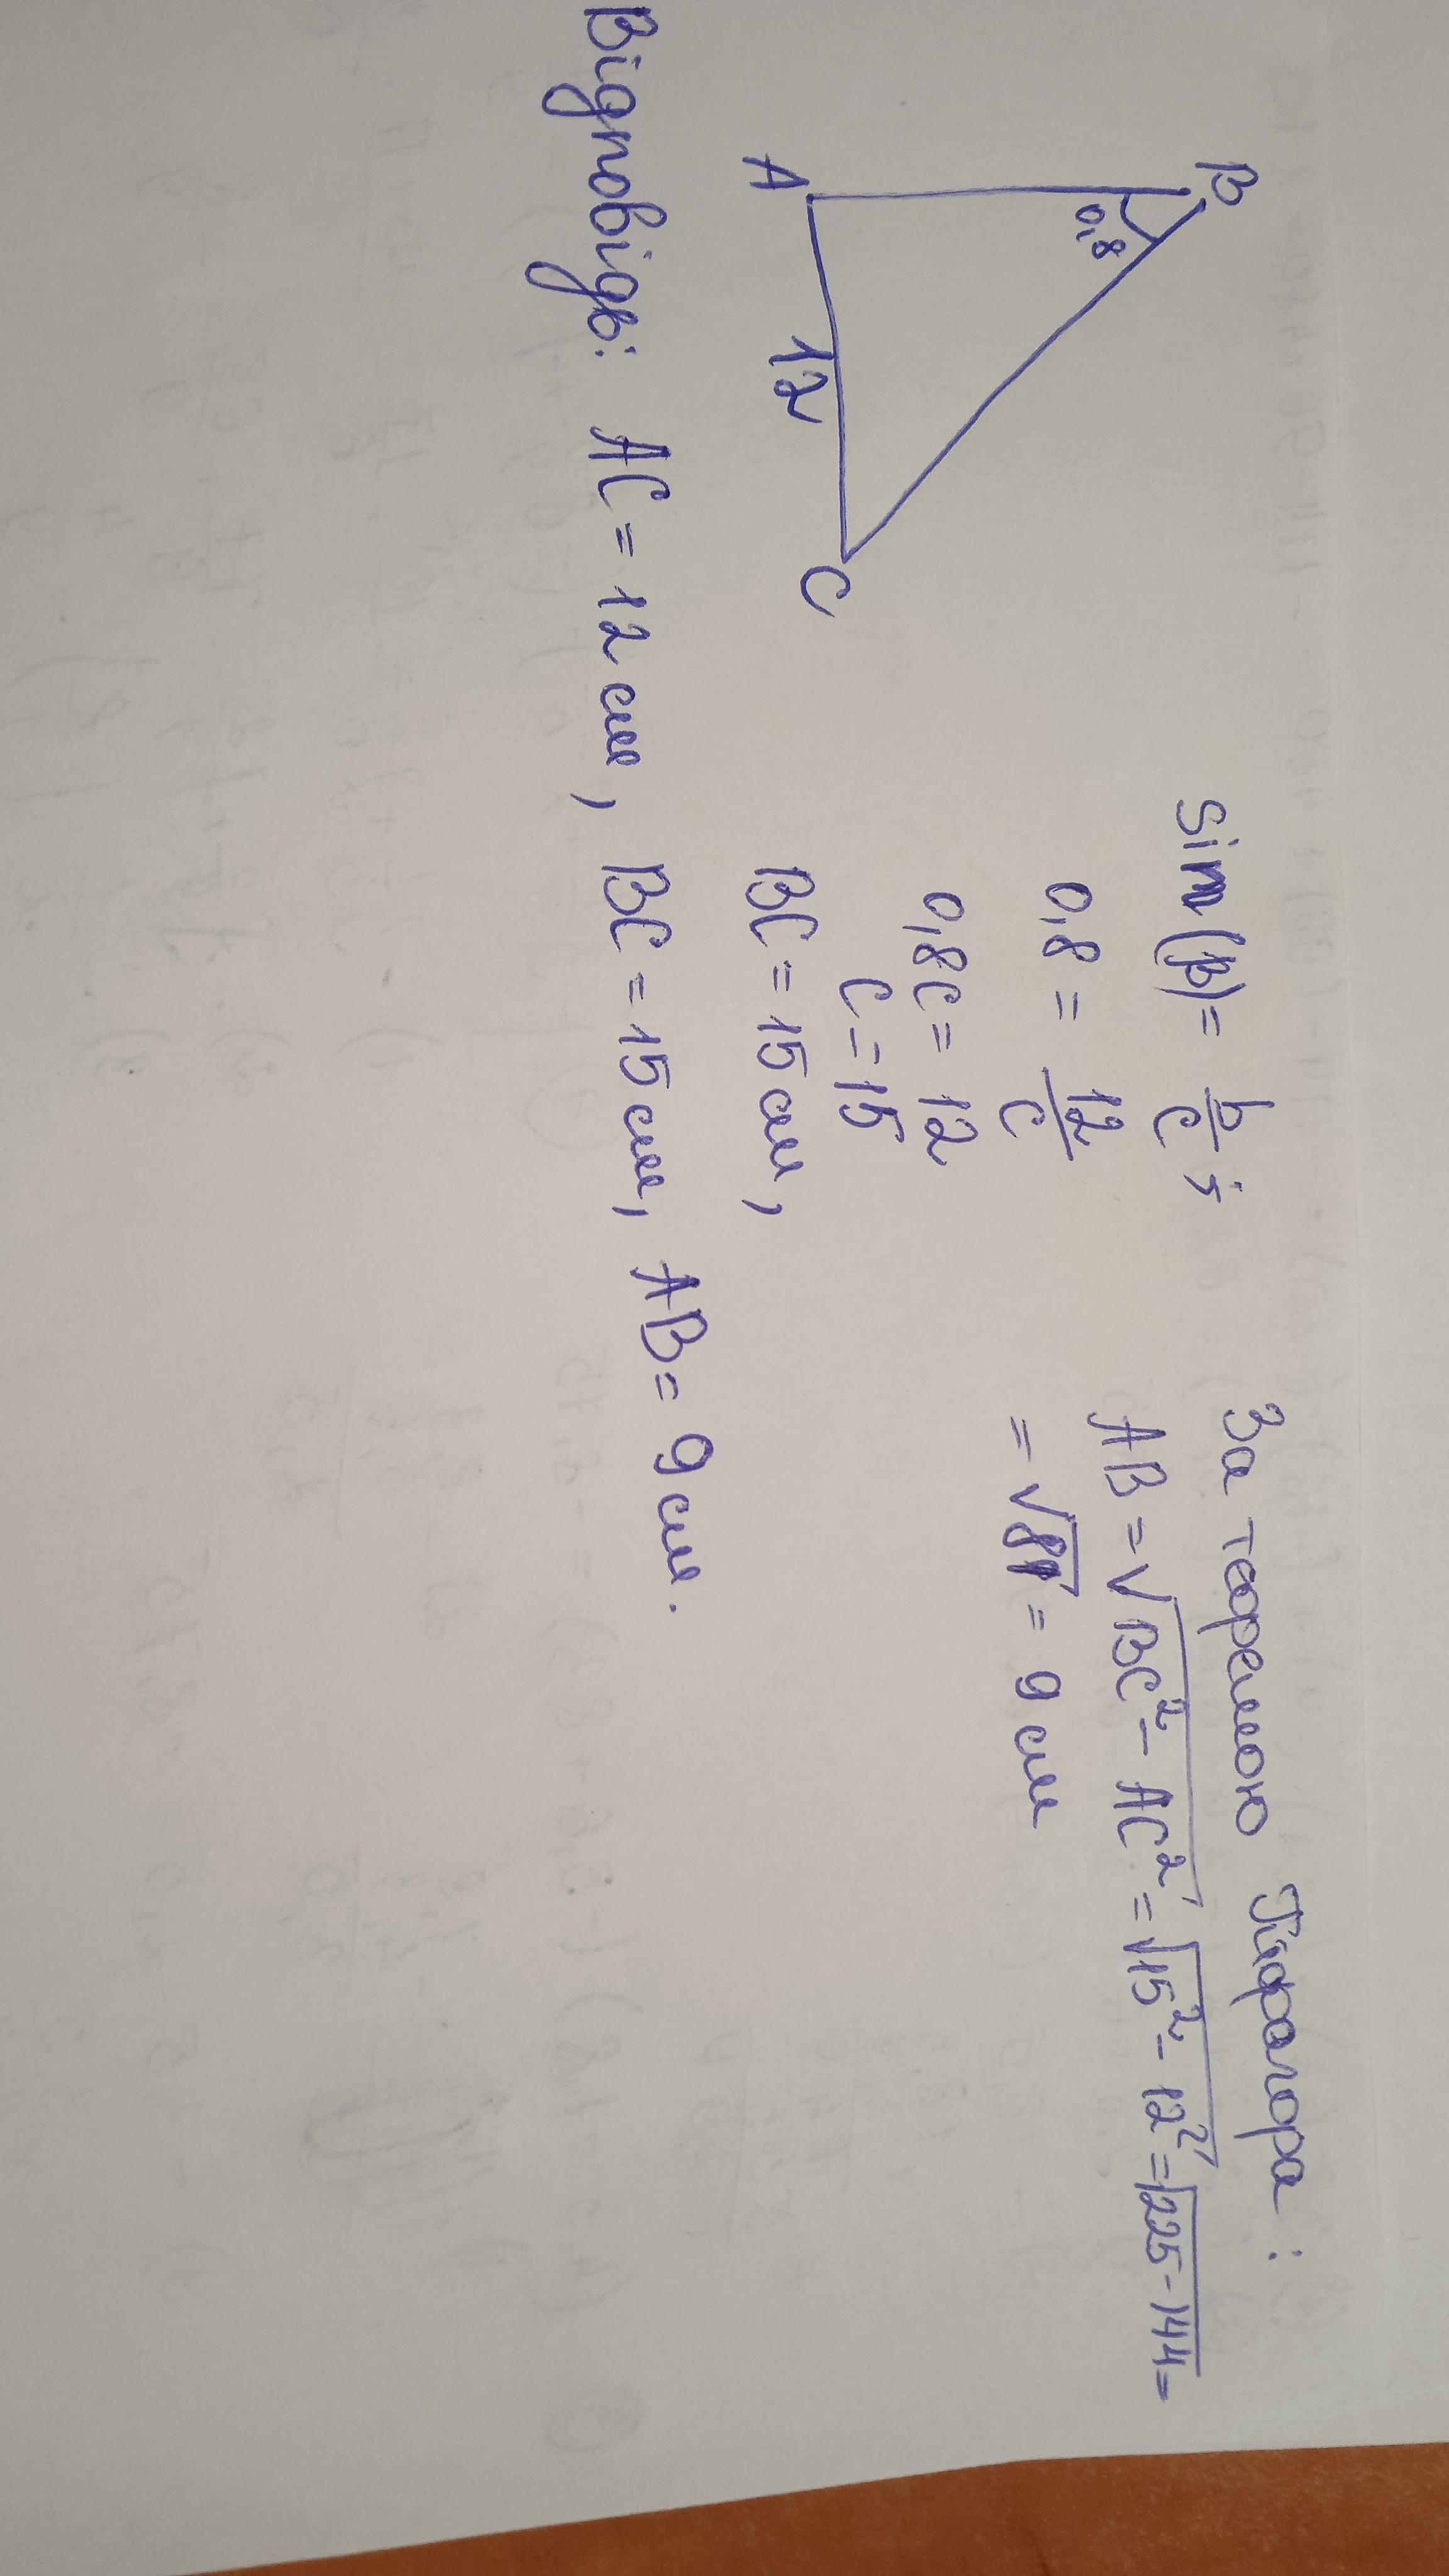 B
0,8
A
12
C
sin(B) = b/c ;
0,8 = 12/c
0,8c = 12
c = 15
BC = 15 см,
За теоремою Піфагора :
AB = √BC² - AC² = √15² - 12² = √225 - 144 =
= √81 = 9 см
Відповідь: AC = 12 см, BC = 15 см, AB = 9 см.